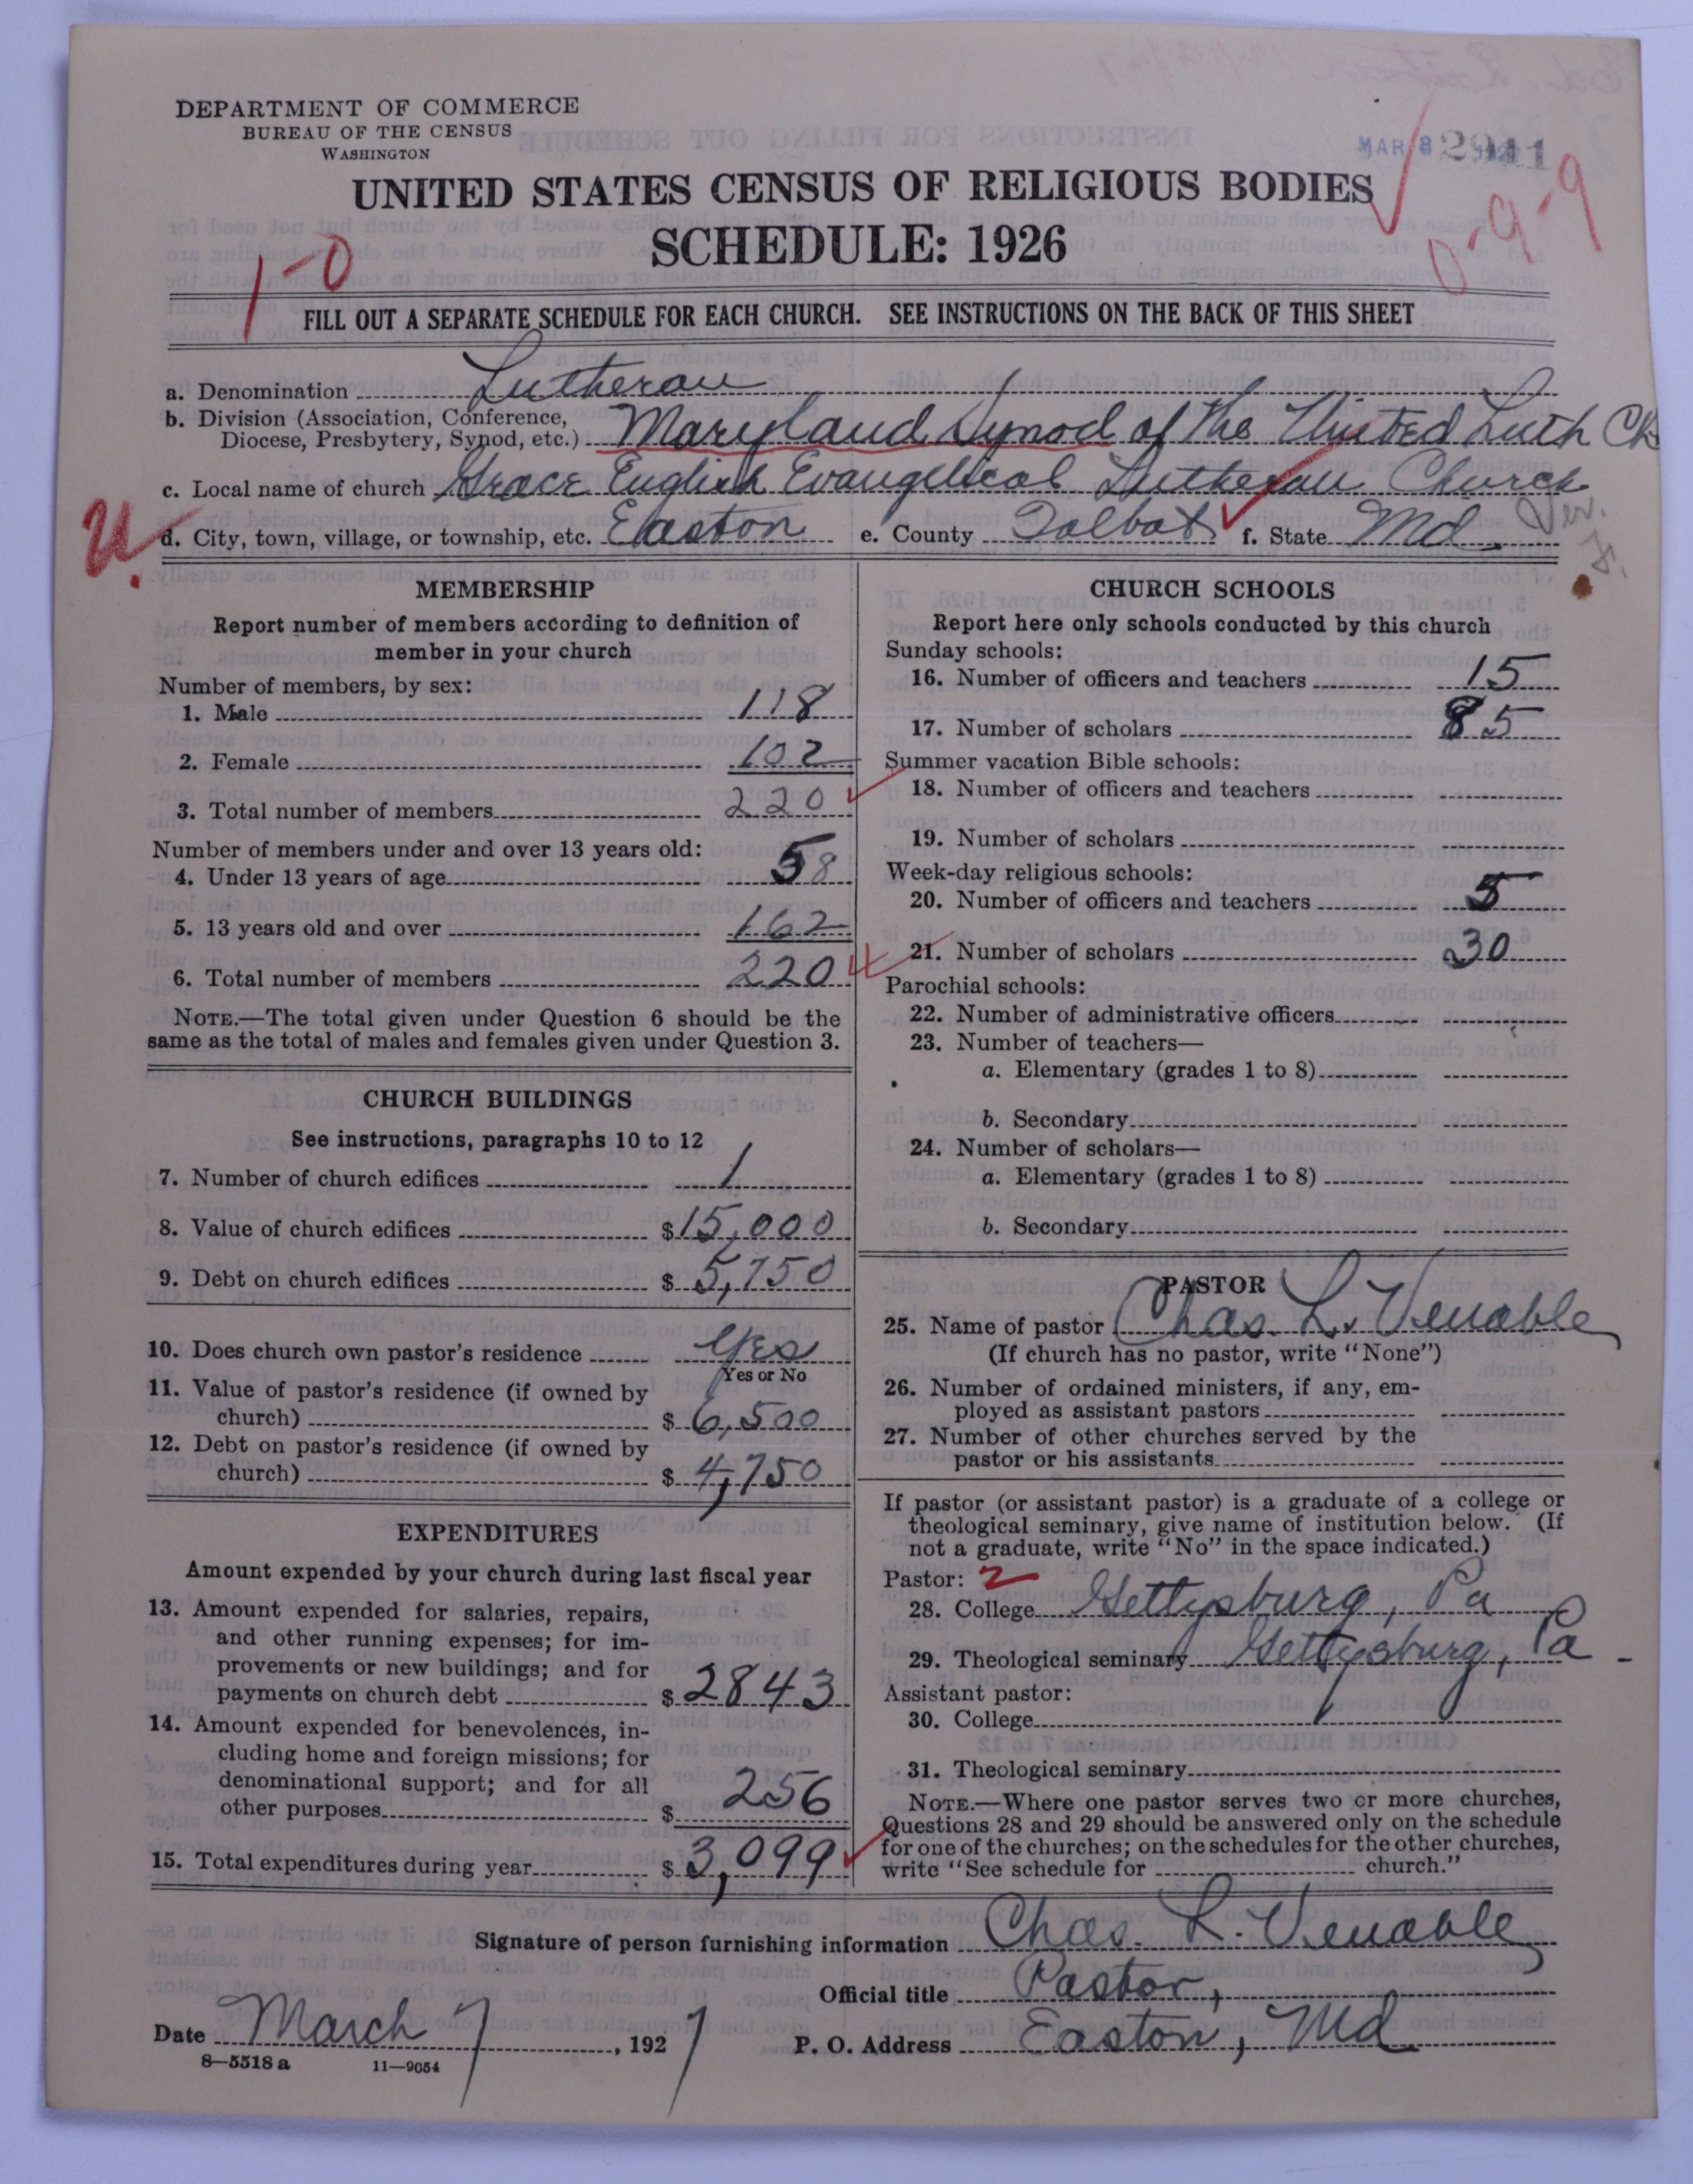 DEPARTMENT OF COMMERCE
BUREAU OF THE CENSUS
WASHINGTON
MAR 8
UNITED STATES CENSUS OF RELIGIOUS BODIES
SCHEDULE: 1926
1-0
0-9-9
FILL OUT A SEPARATE SCHEDULE FOR EACH CHURCH. SEE INSTRUCTIONS ON THE BACK OF THIS SHEET
a. Denomination Lutheran
b. Division (Association, Conference,
Diocese, Presbytery, Synod, etc.) Maryland Synod of the United Luth Ch
c. Local name of church Grace English Evangelical Lutheran Church
d. City, town, village, or township, etc. Easton e. County Talbot f. State Md.
MEMBERSHIP
Report number of members according to definition of
member in your church
Number of members, by sex:
1. Male 118
2. Female 102
3. Total number of members 220
Number of members under and over 13 years old:
4. Under 13 years of age 58
5. 13 years old and over 162
6. Total number of members 220
NOTE.—The total given under Question 6 should be the
same as the total of males and females given under Question 3.
CHURCH BUILDINGS
See instructions, paragraphs 10 to 12
7. Number of church edifices 1
8. Value of church edifices $15,000
9. Debt on church edifices $5,750
10. Does church own pastor's residence Yes
Yes or No
11. Value of pastor's residence (if owned by
church) $6,500
12. Debt on pastor's residence (if owned by
church) $4,750
EXPENDITURES
Amount expended by your church during last fiscal year
13. Amount expended for salaries, repairs,
and other running expenses; for im-
provements or new buildings; and for
payments on church debt $2843
14. Amount expended for benevolences, in-
cluding home and foreign missions; for
denominational support; and for all
other purposes $256
15. Total expenditures during year $3,099
CHURCH SCHOOLS
Report here only schools conducted by this church
Sunday schools:
16. Number of officers and teachers 15
17. Number of scholars 85
Summer vacation Bible schools:
18. Number of officers and teachers
19. Number of scholars
Week-day religious schools:
20. Number of officers and teachers 5
21. Number of scholars 30
Parochial schools:
22. Number of administrative officers
23. Number of teachers—
a. Elementary (grades 1 to 8)
b. Secondary
24. Number of scholars—
a. Elementary (grades 1 to 8)
b. Secondary
PASTOR
25. Name of pastor Chas. L. Venable
(If church has no pastor, write "None")
26. Number of ordained ministers, if any, em-
ployed as assistant pastors
27. Number of other churches served by the
pastor or his assistants
If pastor (or assistant pastor) is a graduate of a college or
theological seminary, give name of institution below. (If
not a graduate, write "No" in the space indicated.)
Pastor: 2
28. College Gettysburg, Pa
29. Theological seminary Gettysburg, Pa
Assistant pastor:
30. College
31. Theological seminary
NOTE.—Where one pastor serves two or more churches,
Questions 28 and 29 should be answered only on the schedule
for one of the churches; on the schedules for the other churches,
write "See schedule for church."
Signature of person furnishing information Chas. L. Venable
Official title Pastor,
Date March 7, 1927 P. O. Address Easton, Md
8—5518 a 11—9054